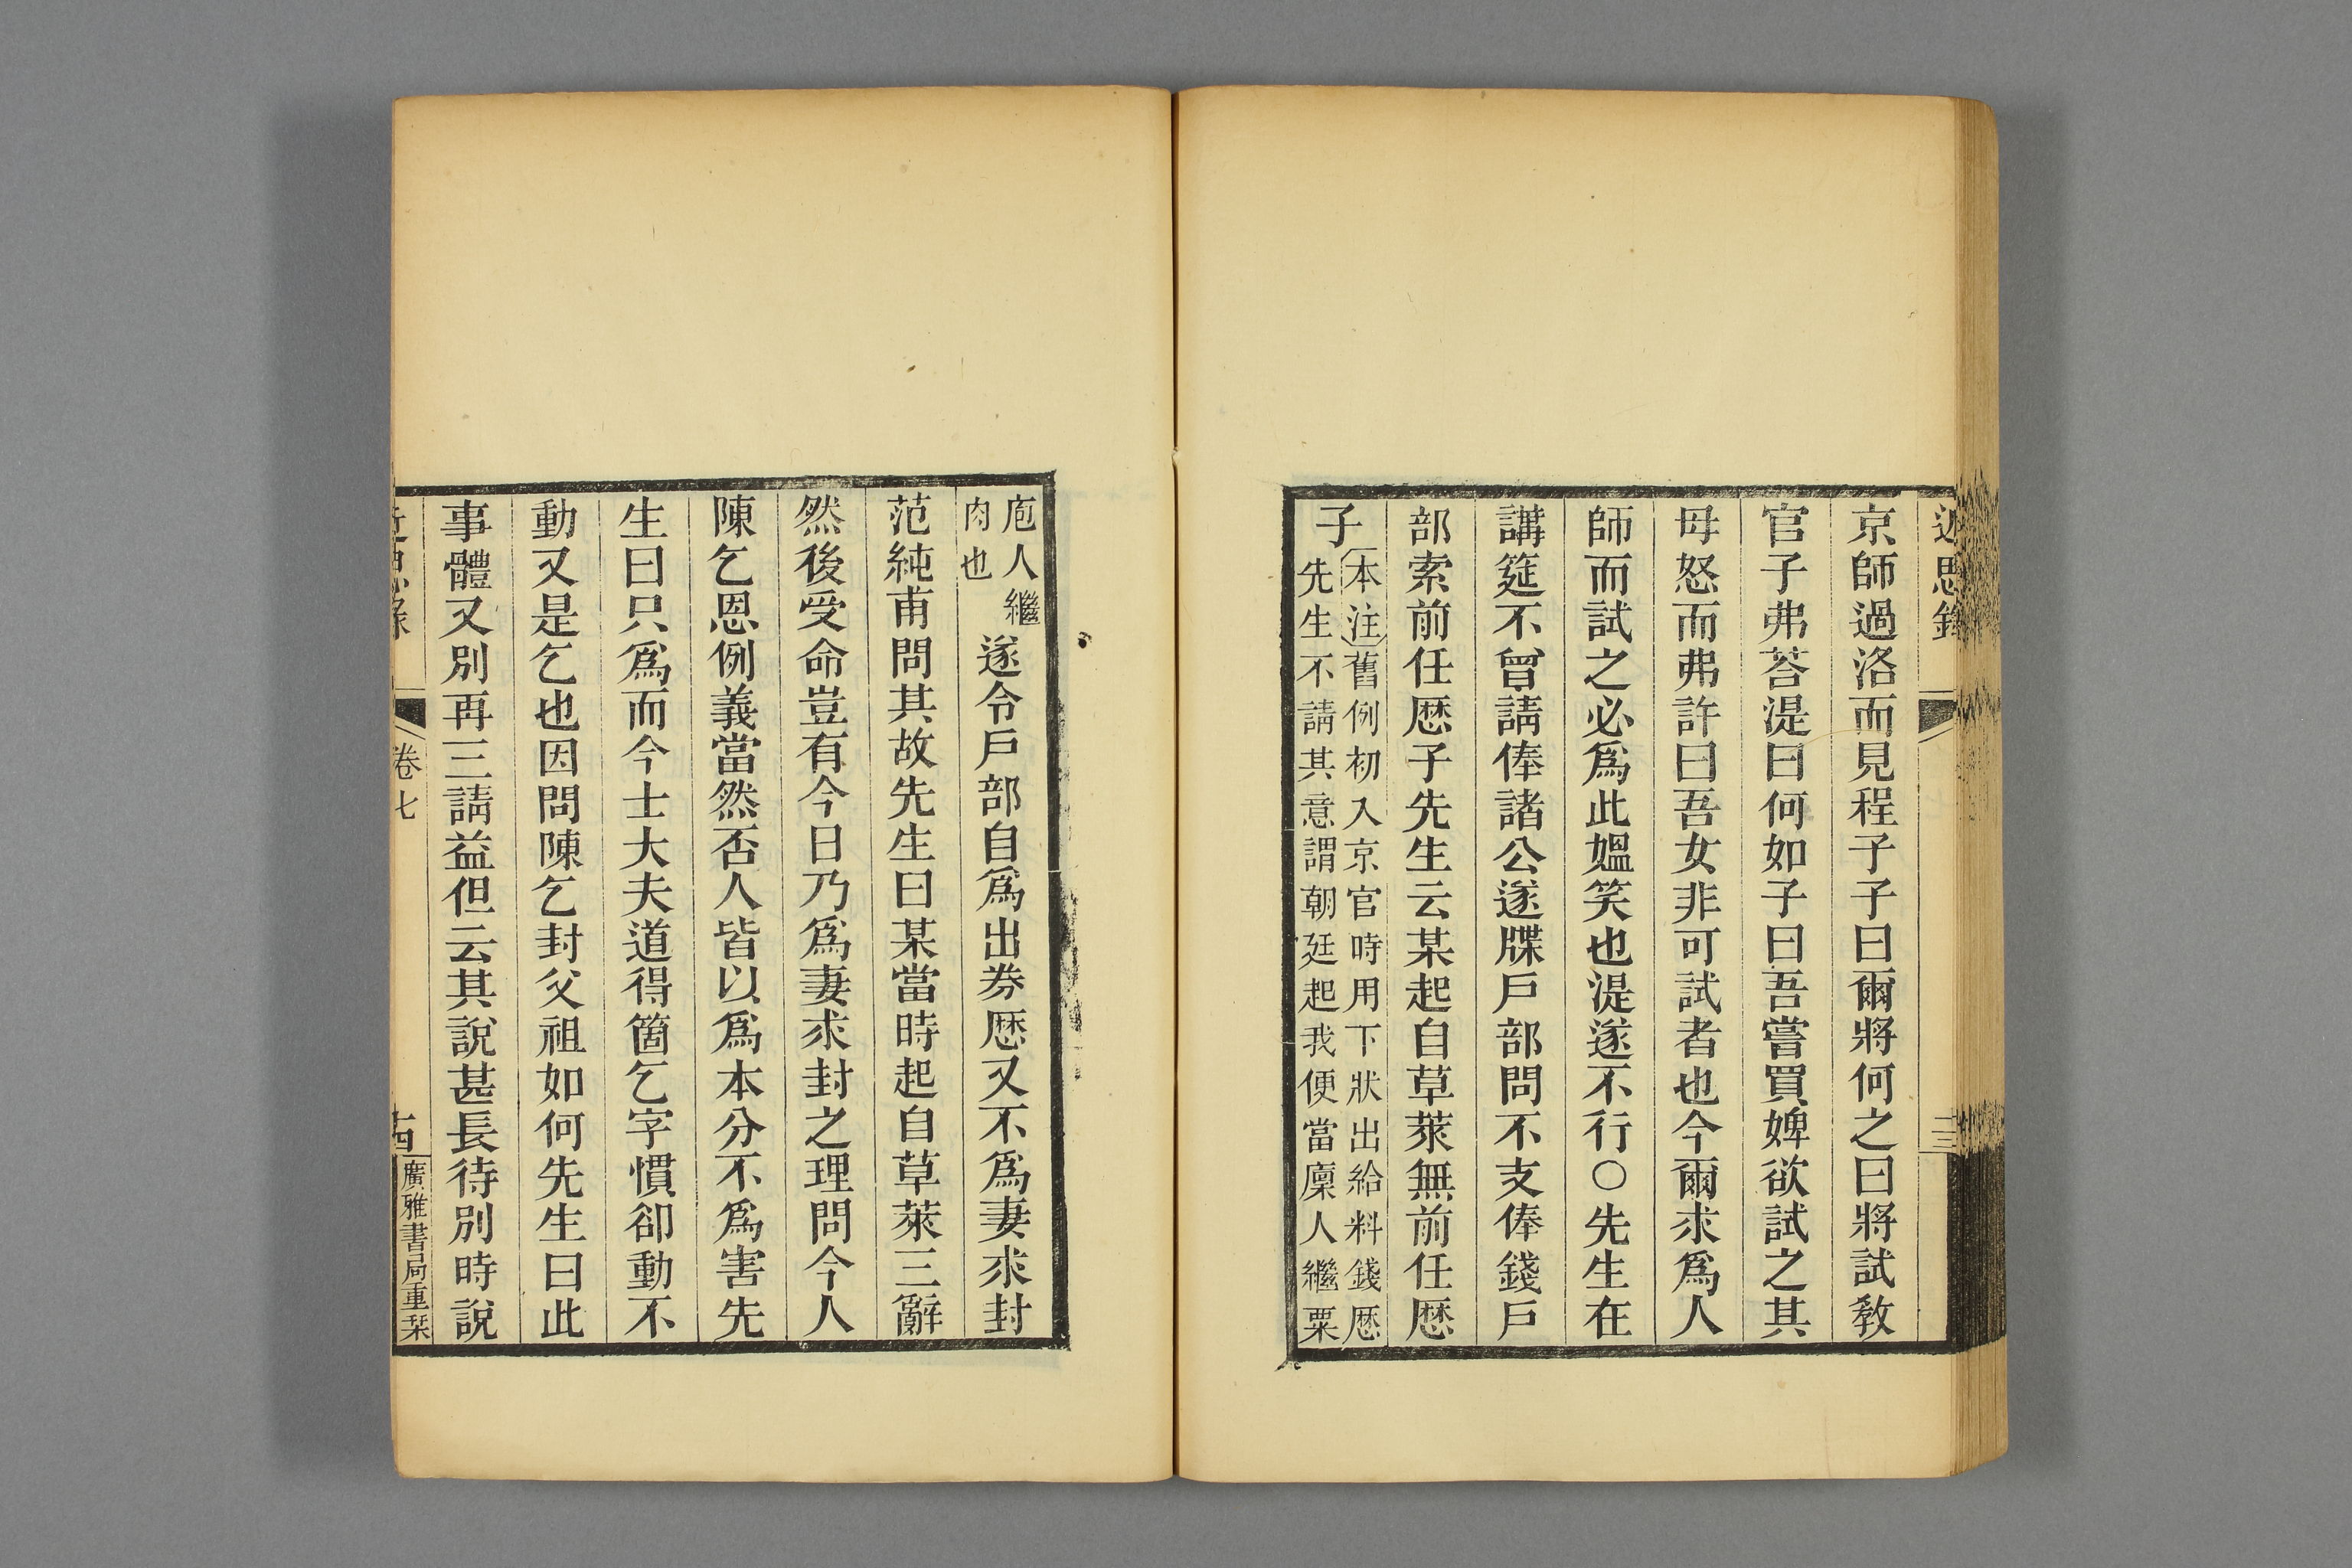 近思錄
京師過洛而見程子子曰爾將何之曰將試敎
官子弗荅湜曰何如子曰吾嘗買婢欲試之其
母怒而弗許曰吾女非可試者也今爾求爲人
師而試之必爲此媼笑也湜遂不行○先生在
講筵不曾請俸諸公遂牒戶部問不支俸錢戶
部索前任歷子先生云某起自草萊無前任歷
子
本注舊例初入京官時用下狀出給料錢歷
先生不請其意謂朝廷起我便當廩人繼粟
庖人繼
肉也
遂令戶部自爲出券歷又不爲妻求封
范純甫問其故先生曰某當時起自草萊三辭
然後受命豈有今日乃爲妻求封之理問今人
陳乞恩例義當然否人皆以爲本分不爲害先
生曰只爲而今士大夫道得箇乞字慣卻動不
動又是乞也因問陳乞封父祖如何先生曰此
事體又別再三請益但云其說甚長待別時說
近思錄
卷七
十四
廣雅書局重栞